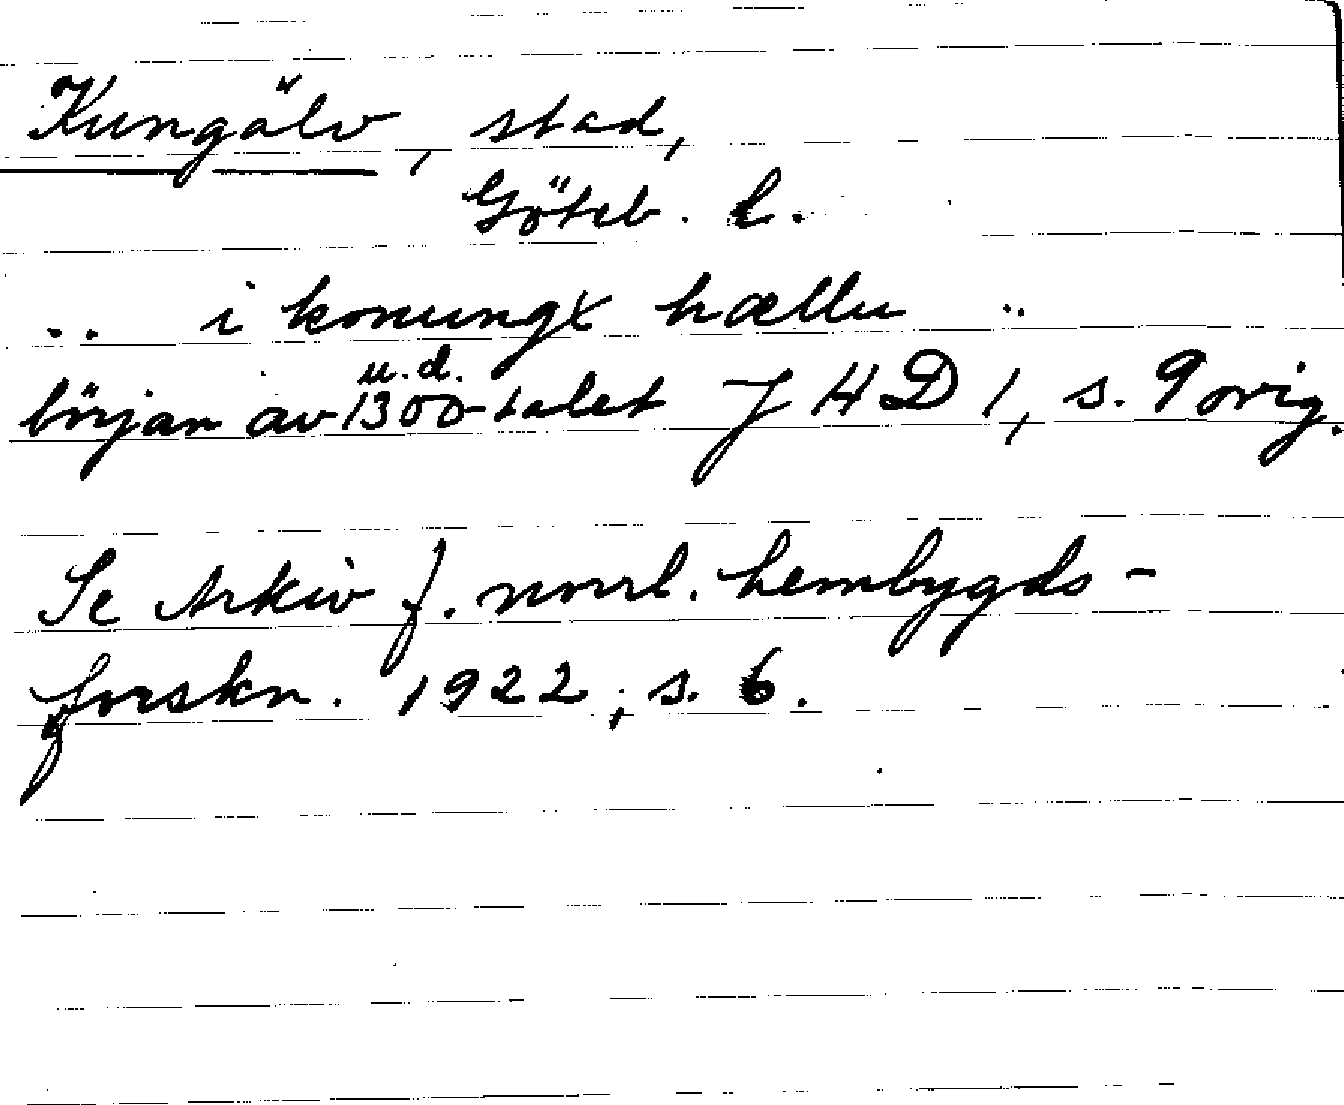 Kungälv, stad,
Göteb. l.
.. i konungx hællu ..
u.d.
början av 1300-talet JHD 1, s. 9 orig.
Se Arkiv f. norrl. hembygds-
forskn. 1922, s. 6.